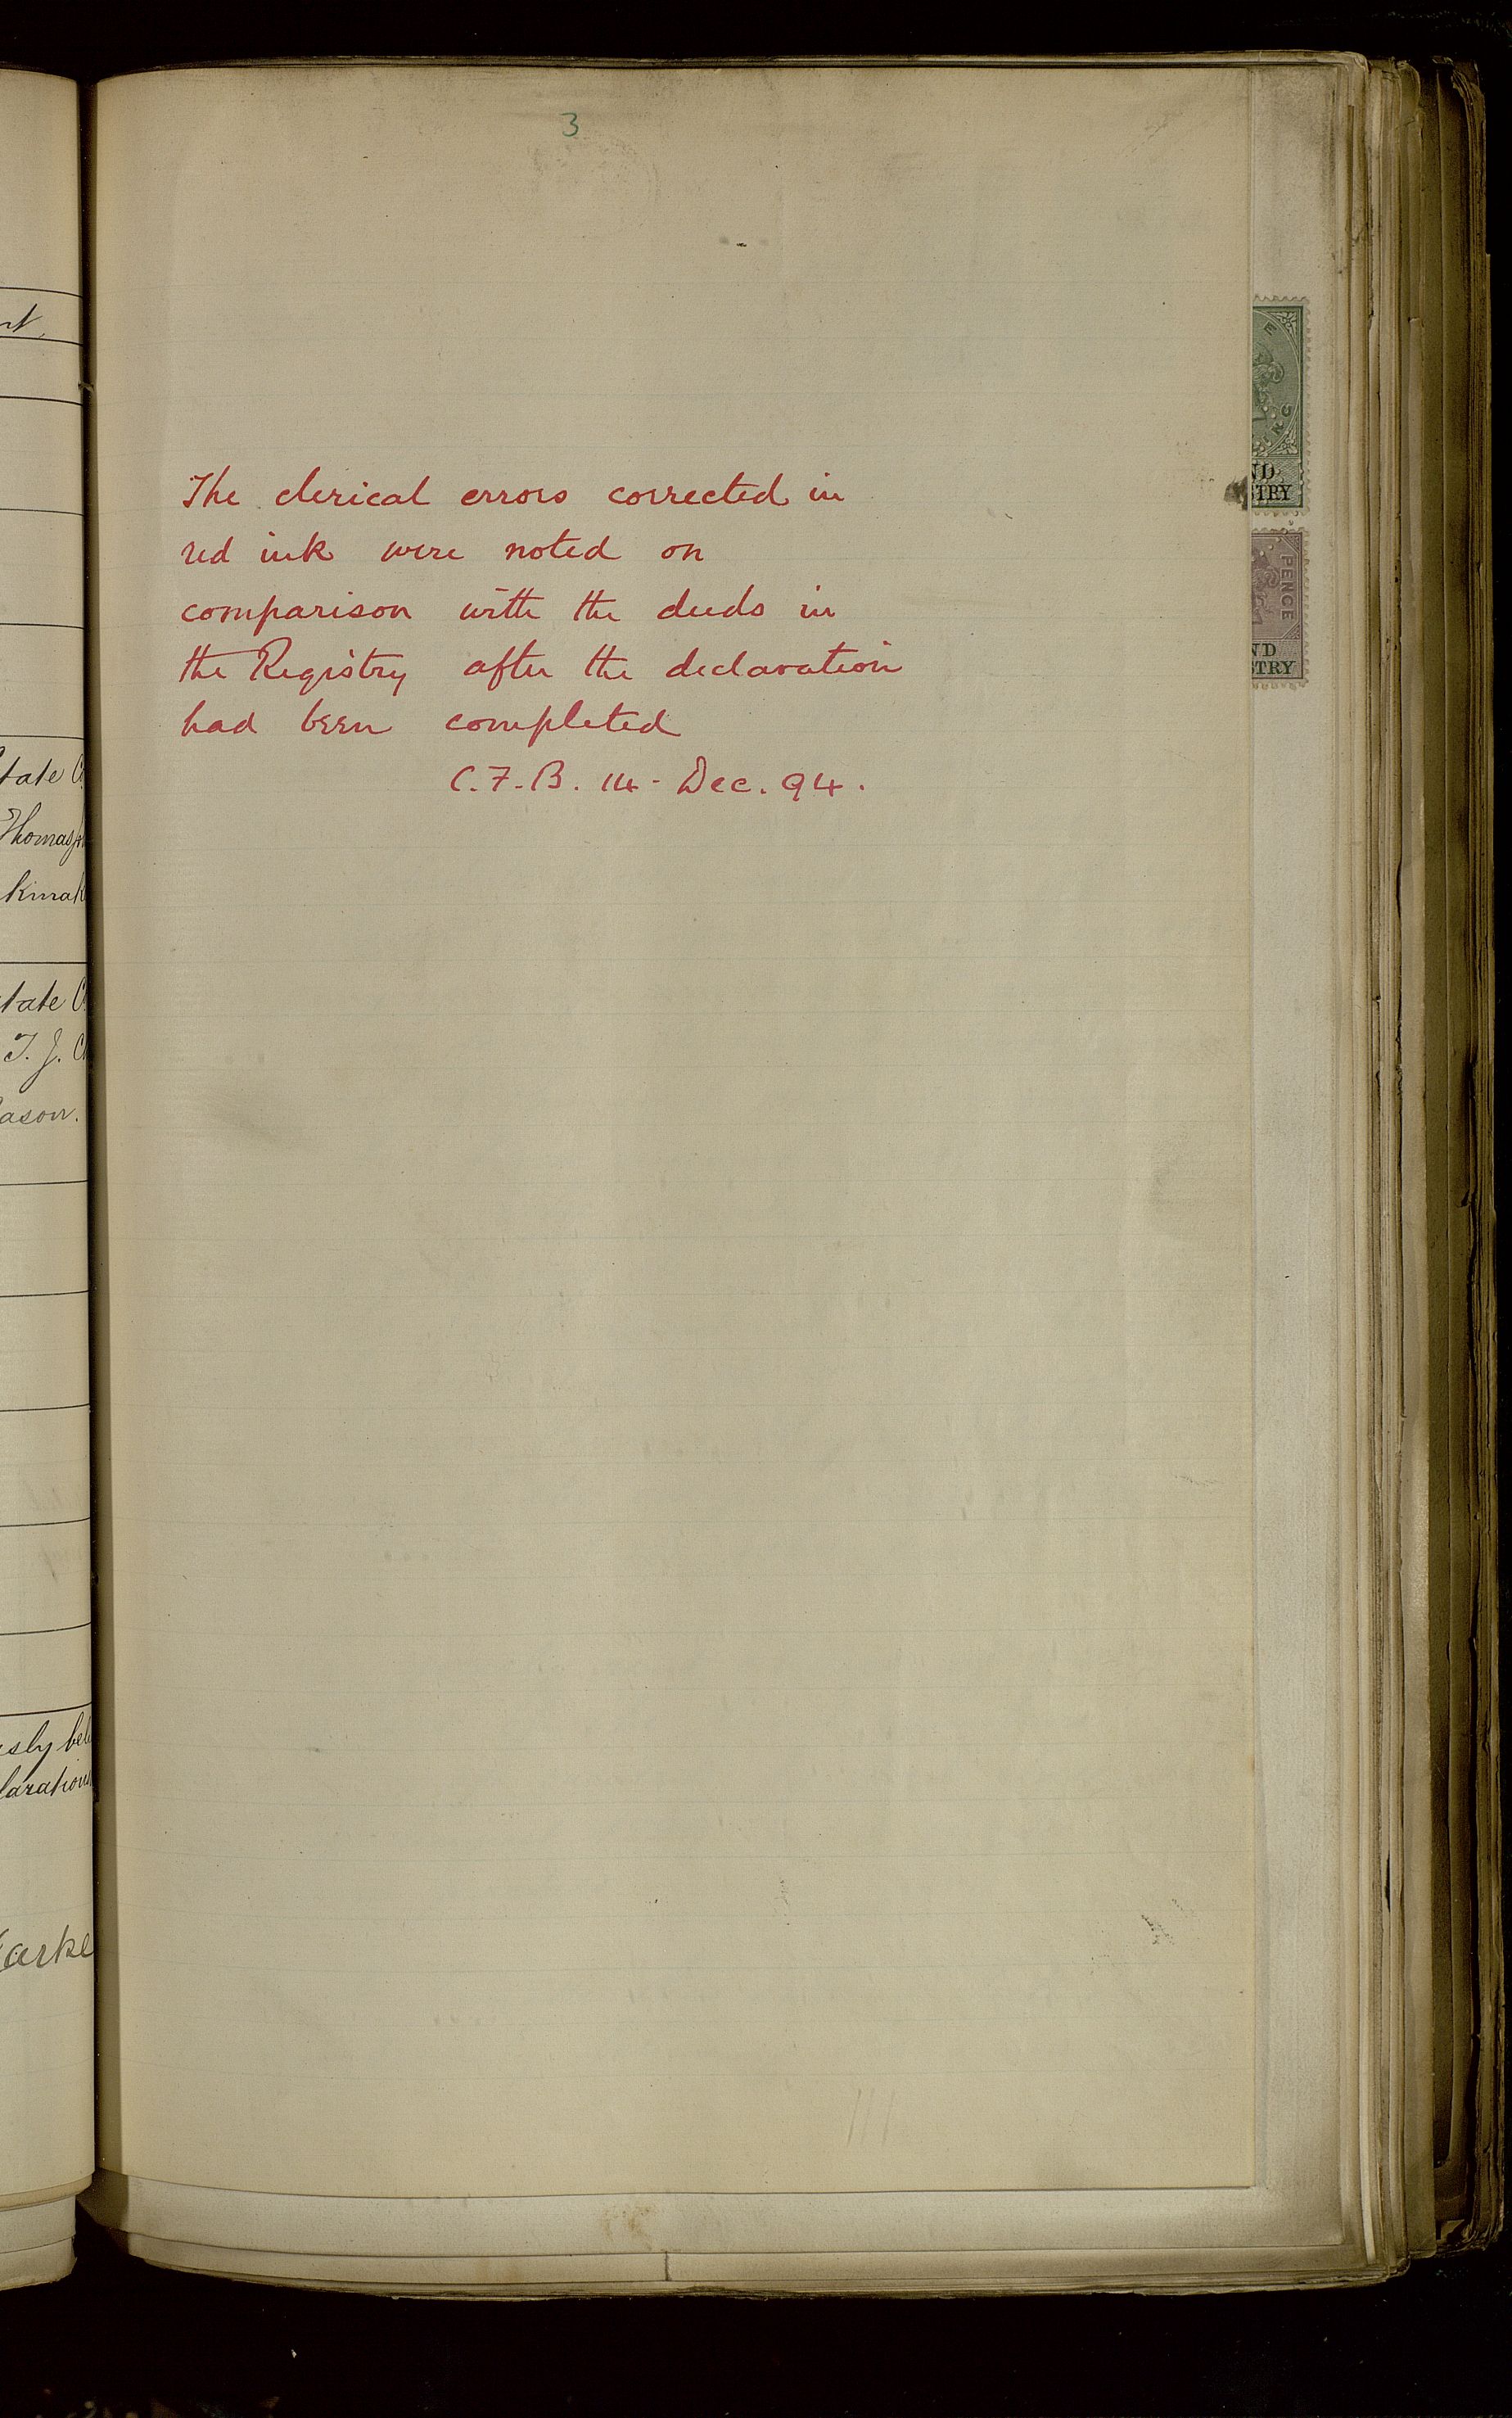 3
The clerical errors corrected in
red ink were noted on
comparison with the deeds in
the Registry after the declaration
had been completed
C.F.B. 14 - Dec. 94.
tate C
Thomas
tate C
T. J. C
ason.
sly bel
laration
arke
E
ING
ND
STRY
PENCE
ND
TRY